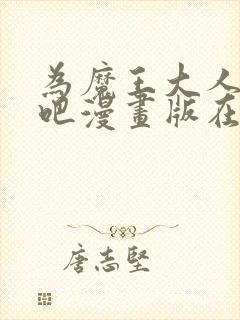 為魔王大人
吧漫畫版在
唐志堅